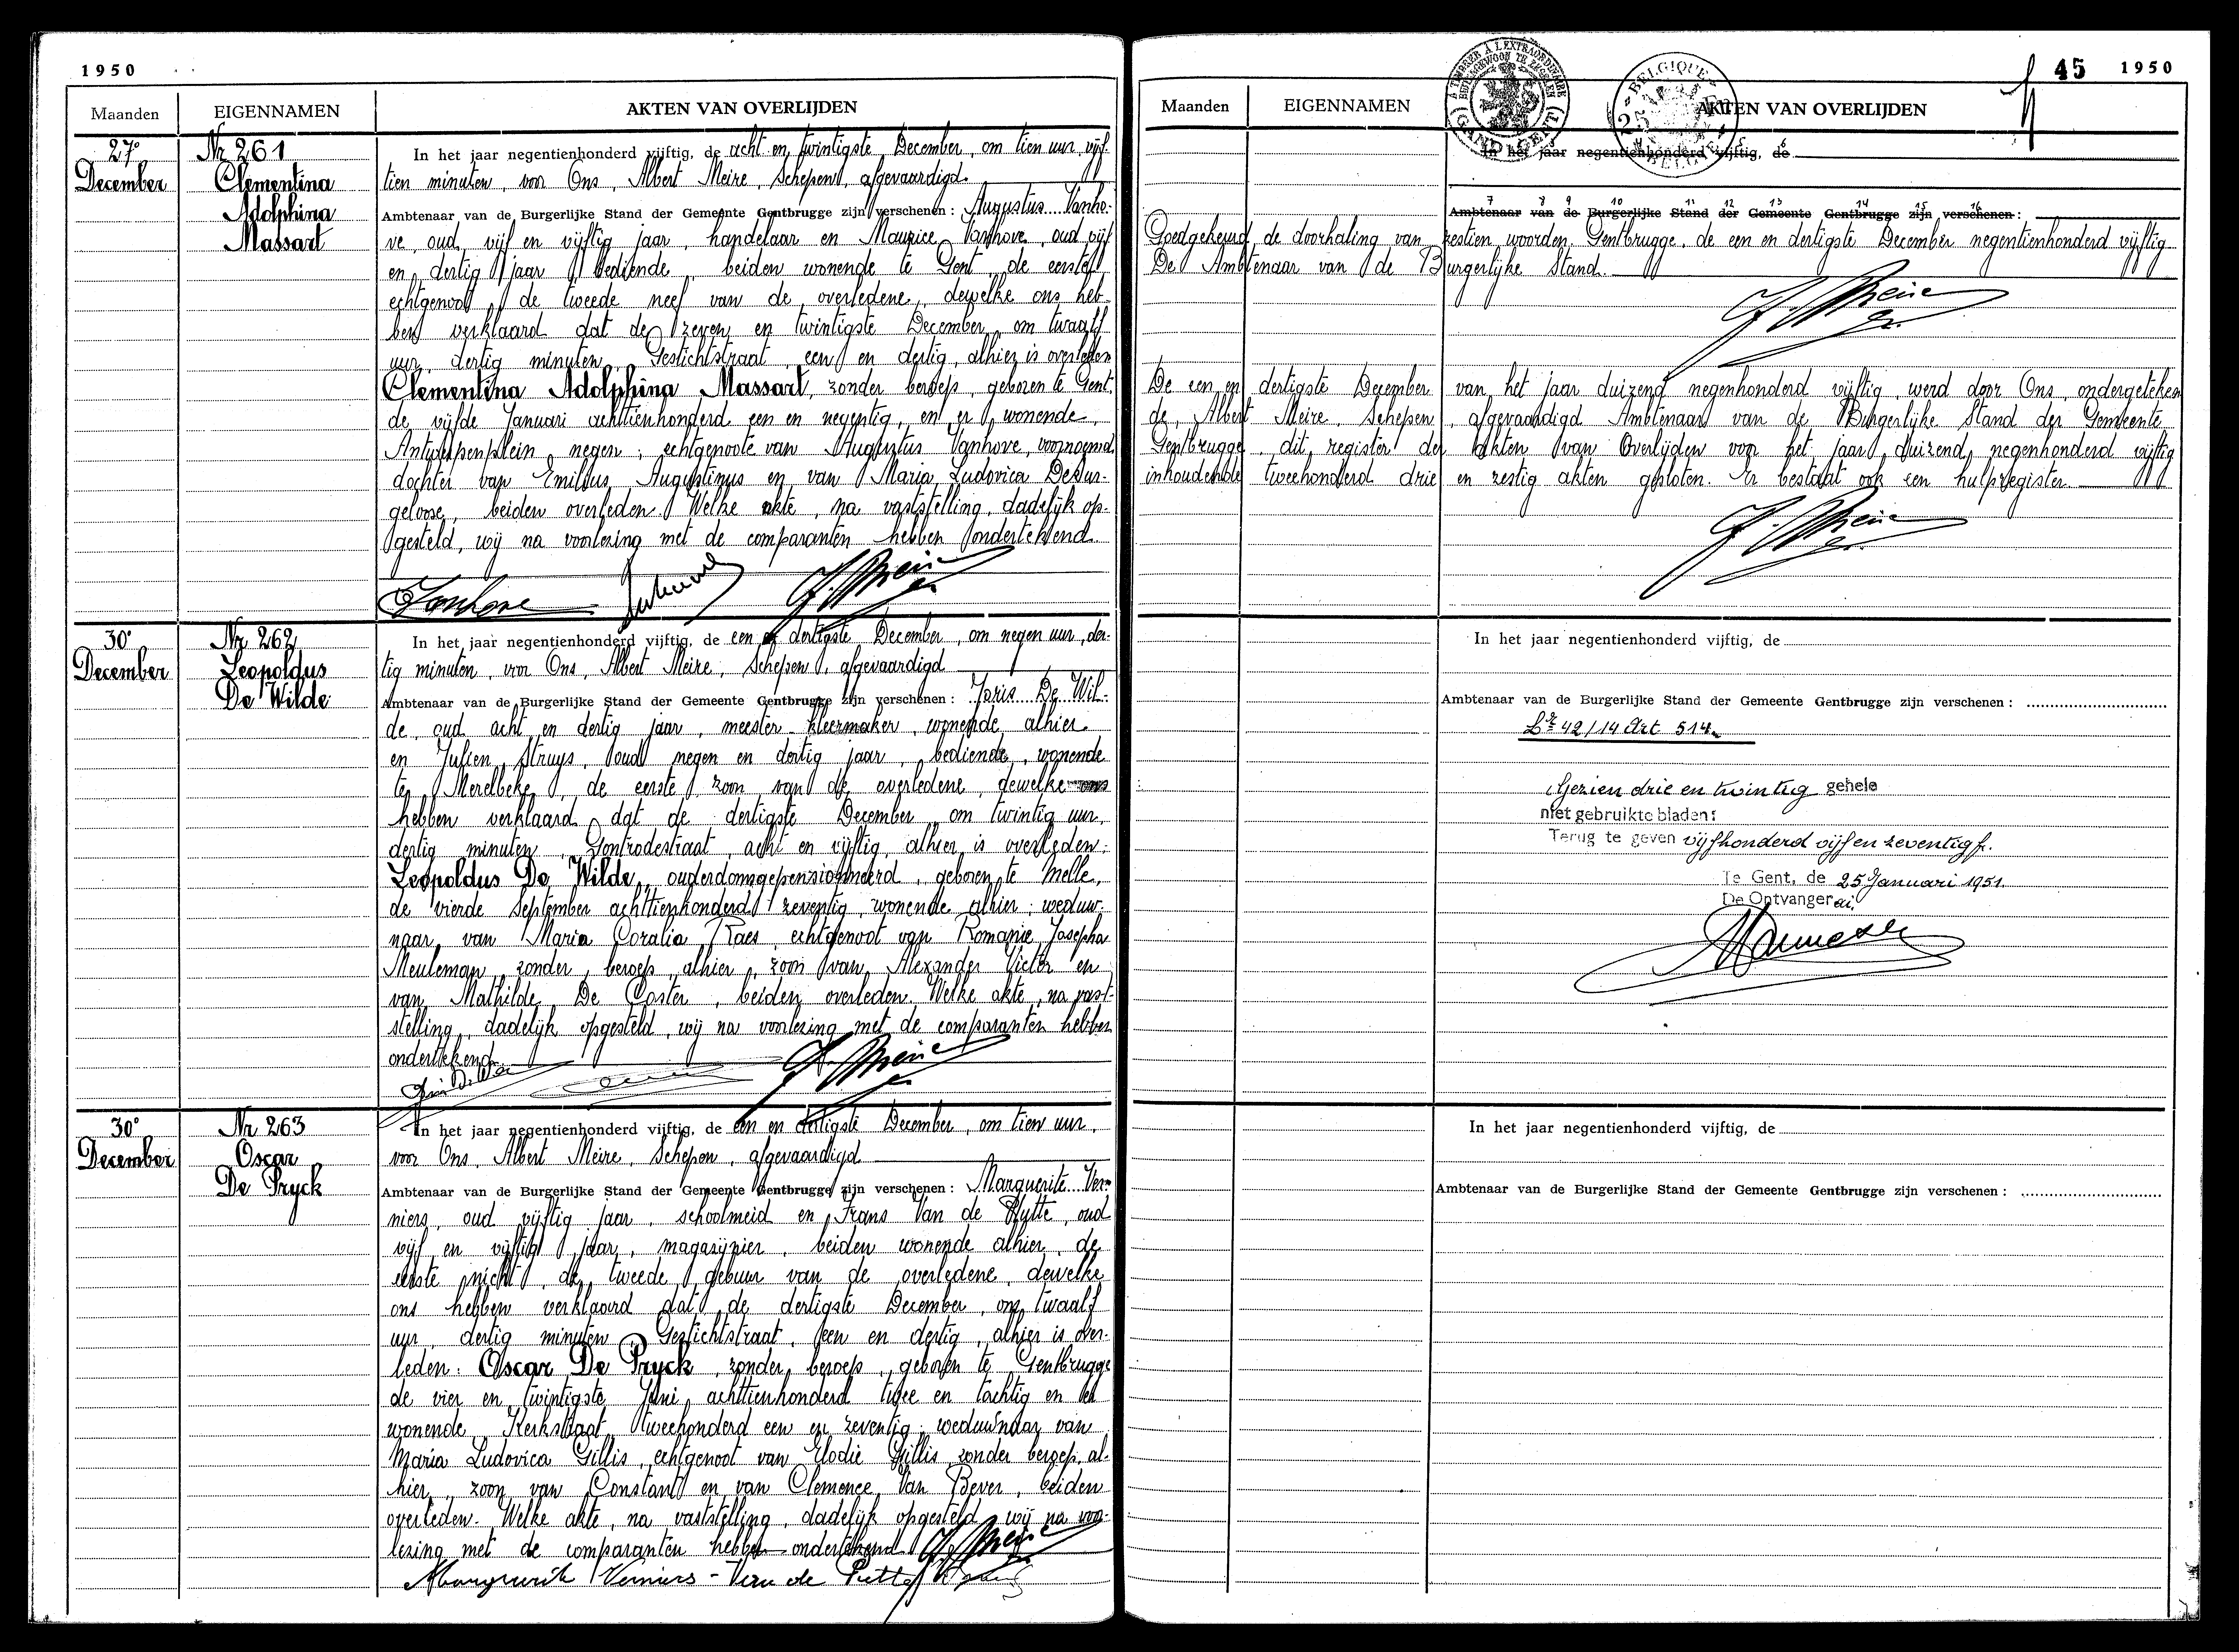 1950
Maanden EIGENNAMEN AKTEN VAN OVERLIJDEN
27° December
Nr 261
Clementina
Adolphina
Massart
In het jaar negentienhonderd vijftig, de acht en twintigste December, om tien uur, vijf-
tien minuten, voor Ons, Albert Meire, Schepen, afgevaardigd
Ambtenaar van de Burgerlijke Stand der Gemeente Gentbrugge zijn verschenen: Augustus Vanho-
ve, oud vijf en vijftig jaar, handelaar en Maurice Vanhove, oud vijf
en dertig jaar, bediende, beiden wonende te Gent, de eerste
echtgenoot, de tweede neef van de overledene, dewelke ons heb-
ben verklaard dat de zeven en twintigste December, om twaalf
uur, dertig minuten, Gestichtstraat een en dertig, alhier is overleden
Clementina Adolphina Massart, zonder beroep, geboren te Gent,
de vijfde Januari achttienhonderd een en negentig, en er wonende,
Antwerpenplein negen; echtgenoote van Augustus Vanhove, voornoemd,
dochter van Emilius Augustinus en van Maria Ludovica Desur-
geloose, beiden overleden. Welke akte, na vaststelling, dadelijk op-
gesteld, wij na voorlezing met de comparanten hebben ondertekend.
Vanhove
30° December
Nr 262
Leopoldus
De Wilde
In het jaar negentienhonderd vijftig, de een en dertigste December, om negen uur, der-
tig minuten, voor Ons, Albert Meire, Schepen, afgevaardigd
Ambtenaar van de Burgerlijke Stand der Gemeente Gentbrugge zijn verschenen: Joris De Wil-
de, oud acht en dertig jaar, meester-kleermaker, wonende alhier
en Julien Struys, oud negen en dertig jaar, bediende, wonende
te Merelbeke, de eerste zoon van de overledene, dewelke ons
hebben verklaard dat de dertigste December, om twintig uur,
dertig minuten, Gontrodestraat, acht en vijftig, alhier is overleden:
Leopoldus De Wilde, ouderdomgepensionneerd, geboren te Melle,
de vierde September achttienhonderd zeventig, wonende alhier; weduw-
naar van Maria Coralia Raes, echtgenoot van Romanie Josepha
Meuleman, zonder beroep, alhier, zoon van Alexander Victor en
van Mathilde De Coster, beiden overleden. Welke akte, na vast-
stelling, dadelijk opgesteld, wij na voorlezing met de comparanten hebben
ondertekend.
30° December
Nr 263
Oscar
De Pryck
In het jaar negentienhonderd vijftig, de een en dertigste December, om tien uur,
voor Ons, Albert Meire, Schepen, afgevaardigd
Ambtenaar van de Burgerlijke Stand der Gemeente Gentbrugge zijn verschenen: Marguerite Ver-
niers, oud vijftig jaar, schoolmeid en Frans Van de Putte, oud
vijf en vijftig jaar, magazijnier, beiden wonende alhier, de
eerste nicht, de tweede gebuur van de overledene, dewelke
ons hebben verklaard dat de dertigste December, om twaalf
uur, dertig minuten, Gestichtstraat, een en dertig, alhier is over-
leden: Oscar De Pryck, zonder beroep, geboren te Gentbrugge
de vier en twintigste Juni achttienhonderd twee en tachtig en er
wonende Kerkstraat tweehonderd een en zeventig; weduwnaar van
Maria Ludovica Gillis, echtgenoot van Elodie Gillis, zonder beroep, al-
hier, zoon van Constant en van Clemence Van Bever, beiden
overleden. Welke akte, na vaststelling, dadelijk opgesteld, wij na voor-
lezing met de comparanten hebben ondertekend.
Marguerite Verniers - Van de Putte
45 1950
Maanden EIGENNAMEN AKTEN VAN OVERLIJDEN
A TIMBRER A L'EXTRAORDINAIRE
BUITENGEWOON TE ZEGELEN
(GAND) (GENT)
BELGIQUE
BELGIE
In het jaar negentienhonderd vijftig, de
7 8 9 10 11 12 13 14 15 16
Ambtenaar van de Burgerlijke Stand der Gemeente Gentbrugge zijn verschenen:
Goedgekeurd de doorhaling van zestien woorden. Gentbrugge, de een en dertigste December negentienhonderd vijftig
De Ambtenaar van de Burgerlijke Stand.
De een en dertigste December van het jaar duizend negenhonderd vijftig, werd door Ons, ondergeteken-
de, Albert Meire, Schepen, afgevaardigd Ambtenaar van de Burgerlijke Stand der Gemeente
Gentbrugge, dit register der Akten van Overlijden voor het jaar duizend negenhonderd vijftig
inhoudende tweehonderd drie en zestig akten gesloten. Er bestaat ook een hulpregister.
In het jaar negentienhonderd vijftig, de
Ambtenaar van de Burgerlijke Stand der Gemeente Gentbrugge zijn verschenen:
42/14 Art 514
Gezien drie en twintig gehele
niet gebruikte bladen:
Terug te geven vijfhonderd vijf en zeventig f.
Te Gent, de 25 Januari 1951.
De Ontvanger ai.
In het jaar negentienhonderd vijftig, de
Ambtenaar van de Burgerlijke Stand der Gemeente Gentbrugge zijn verschenen: